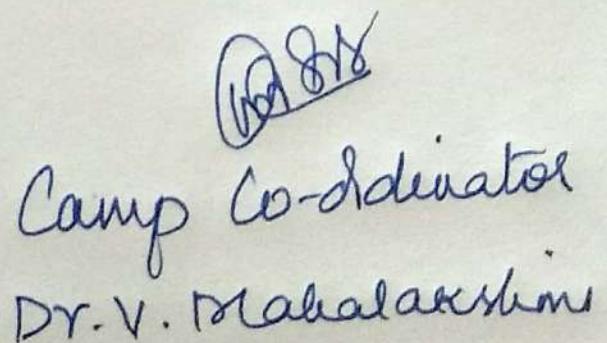 Camp Co-ordinator
Dr. V. Mahalakshmi